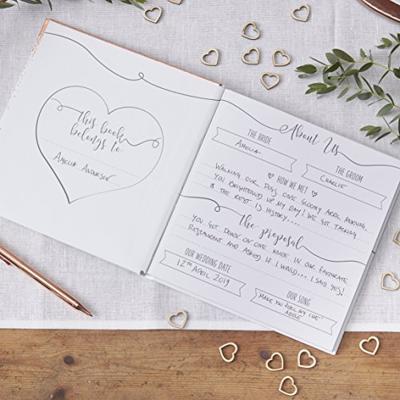 This book
belongs to:
Amelia Anderson
About Us
THE BRIDE
Amelia
THE GROOM
Charlie
HOW WE MET
Walking our dogs one gloomy April morning,
you brightened up my day! We got talking
& the rest is history....
The proposal
You got down on one knee in our favourite
restaurant and asked if I would... I said yes!
OUR WEDDING DATE
12th April 2019
OUR SONG
Make you feel my love
Adele